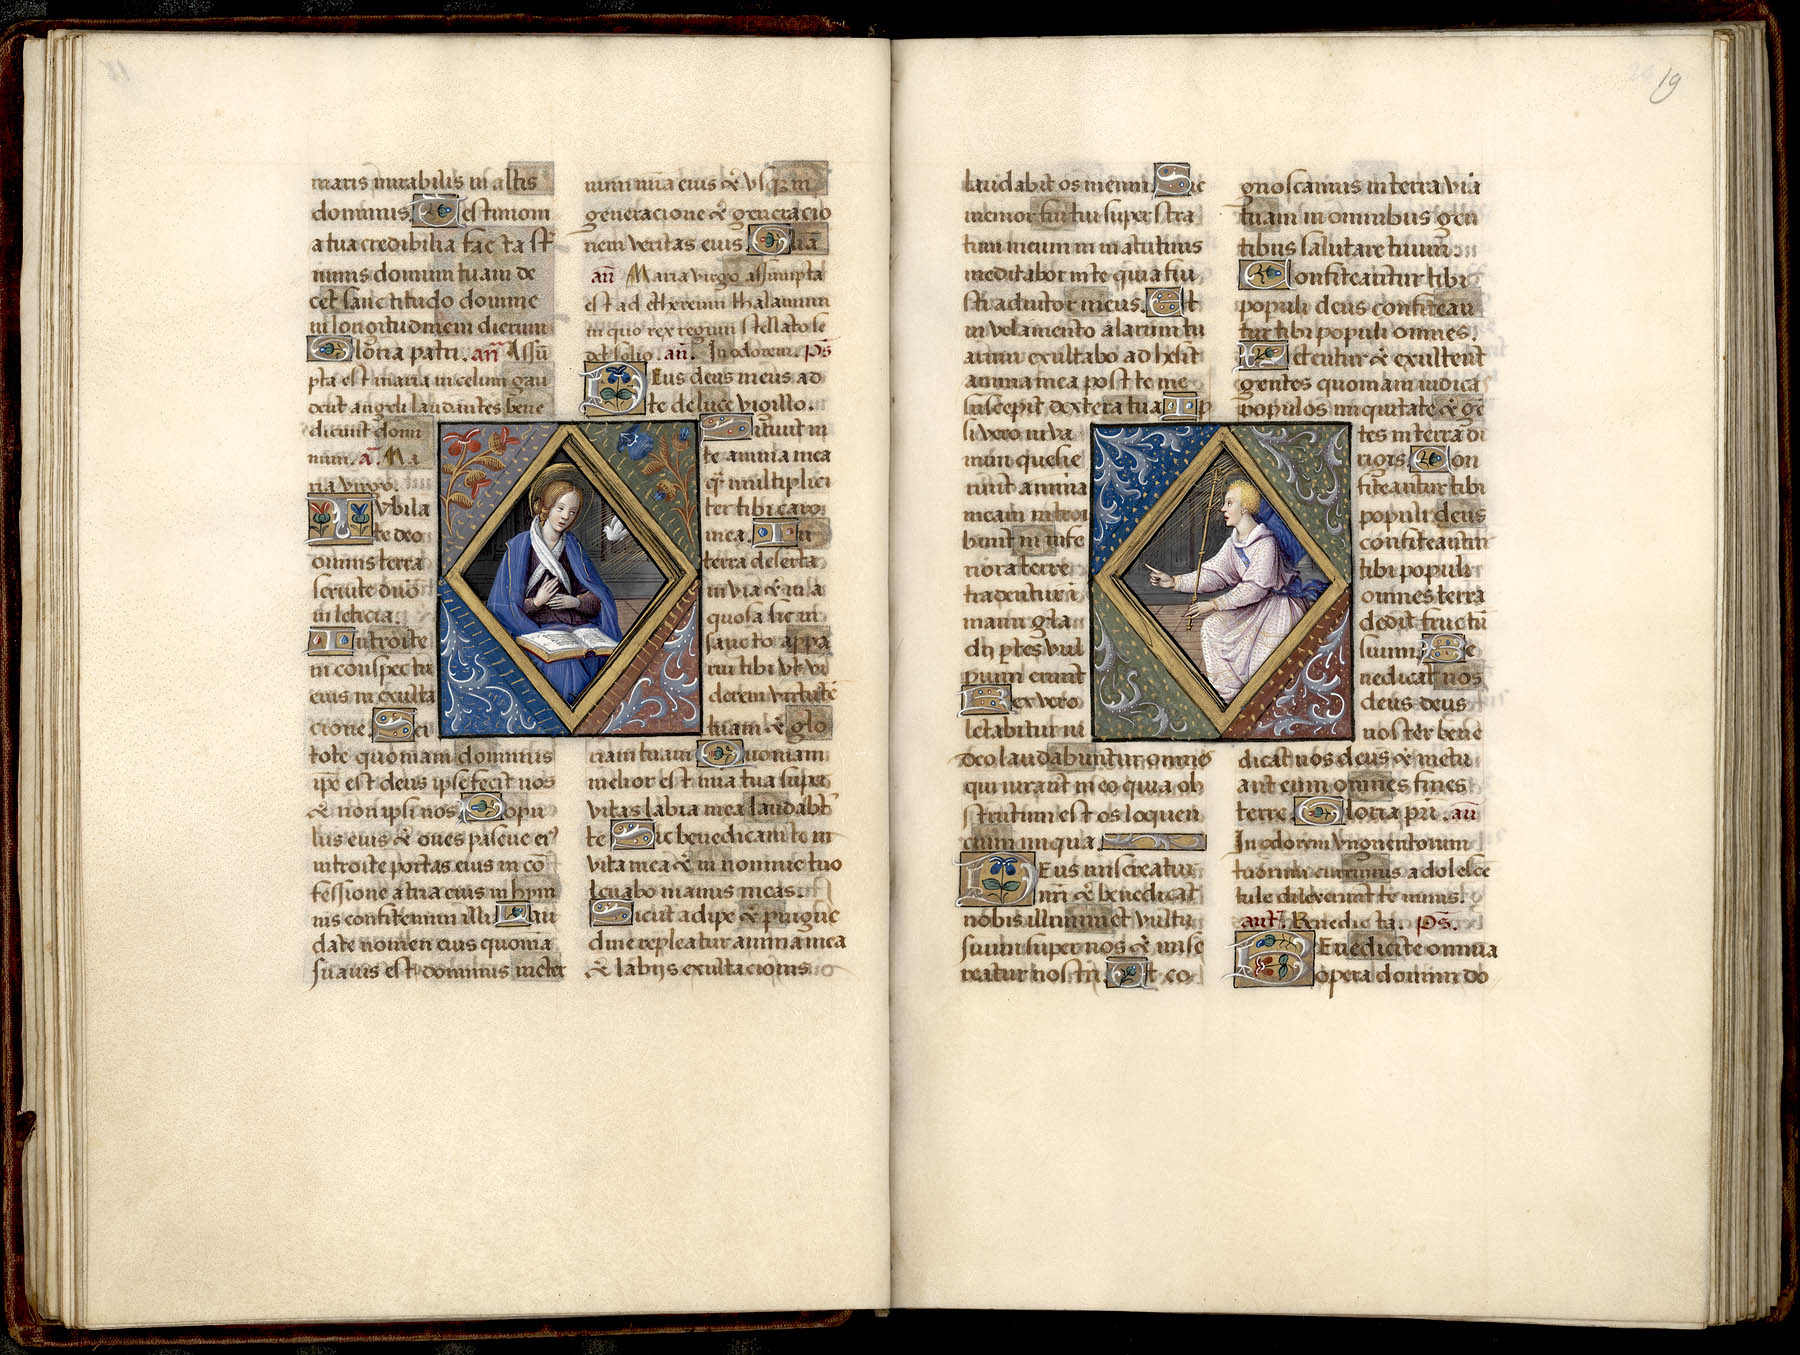 maris mirabilis in altis
dominus. Testimoni
a tua credibilia facta st̄
nimis domum tuam de
cet sanctitudo domine
in longitudinem dierum
Gloria patri. añ Assū
pta est maria in celum gau
dent angeli laudantes bene
dicunt domi
num. a̅. Ma
ria virgo.
Iubila
te deo
omnis terra
seruite dn̄o
in leticia.
Introite
in conspectu
eius in exulta
cione. Sci
tote quoniam dominus
ipe est deus ipse fecit nos
& non ipsi nos. Popu
lus eius & oues pascue ei9
introite portas eius in cō
fessione atria eius in hym
nis confitemini illi. Lau
date nomen eius quoniā
suauis est dominus in eter
num mīa eius & vsq in
generacione & generacio
nem veritas eius. Gl̄iā
añ Maria virgo assumpta
est ad ethereum thalamum
in quo rex regum stellato se
det solio. añ. In odorem. ps̄
Deus deus meus ad
te de luce vigilo.
Sitiuit in
te anima mea
q̄ multiplici
ter tibi caro
mea. In
terra deserta
in via & in a
quosa sic in
sancto appa
rui tibi vt vi
derem virtutē
tuam & glo
riam tuam. Quoniam
melior est mīa tua super
vitas labia mea laudabt̄
te. Sic benedicam te in
vita mea & in nomine tuo
leuabo manus meas.
Sicut adipe & pingue
dine repleatur anima mea
& labijs exultacionis
laudabit os meum. Sic
memor fui tui super stra
tum meum in matutinis
meditabor in te quia fui
sti adiutor meus. Et
in velamento alarum tu
arum exultabo adhesit
anima mea post te me
suscepit dextera tua. Ip
si vero in va
num quesie
runt anima
meam introi
bunt in infe
riora terre
tradentur i
manu gla
dij ptes vul
pium erunt
Rex vero
letabitur in
deo laudabuntur omnes
qui iurant in eo quia ob
structum est os loquen
cium iniqua.
Deus misereatur
nrī & benedicat
nobis illuminet vultū
suum super nos & mise
reatur nostri. Vt co
gnoscamus in terra viā
tuam in omnibus gen
tibus salutare tuum.
Confiteantur tibi
populi deus confitean
tur tibi populi omnes.
Letentur & exultent
gentes quoniam iudica
populos in equitate & gē
tes in terra di
rigis. Con
fiteantur tibi
populi deus
confiteantur
tibi populi
omnes terra
dedit fructū
suum. Be
nedicat nos
deus deus
noster bene
dicat nos deus & metu
ant eum omnes fines
terre. Gloria pri. añ
In odorem vnguentorum
tuorum currimus adolesce
tule dilexerunt te nimis.
ant. Benedicta. ps̄.
Benedicite omnia
opera domini do
19